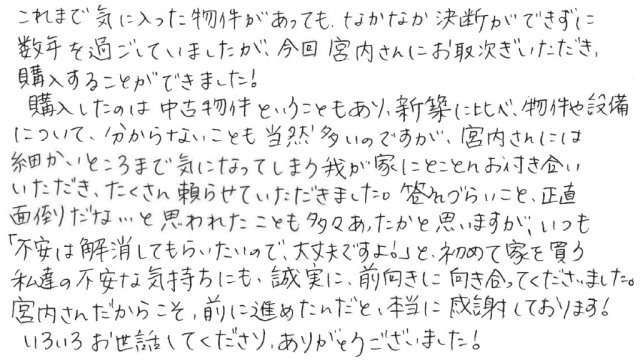 これまで気に入った物件があっても、なかなか決断ができずに
数年を過ごしていましたが、今回宮内さんにお取次ぎいただき、
購入することができました!
購入したのは中古物件ということもあり、新築に比べ、物件や設備
について、分からないことも当然多いのですが、宮内さんには
細かいところまで気になってしまう我が家にとことんお付き合い
いただき、たくさん頼らせていただきました。答えづらいこと、正直
面倒りだな…と思われたことも多々あったかと思いますが、いつも
「不安は解消してもらいたいので、大丈夫ですよ!」と、初めて家を買う
私達の不安な気持ちにも、誠実に、前向きに向き合ってくださいました。
宮内さんだからこそ、前に進めたんだと、本当に感謝しております!
いろいろお世話してくださり、ありがとうございました!